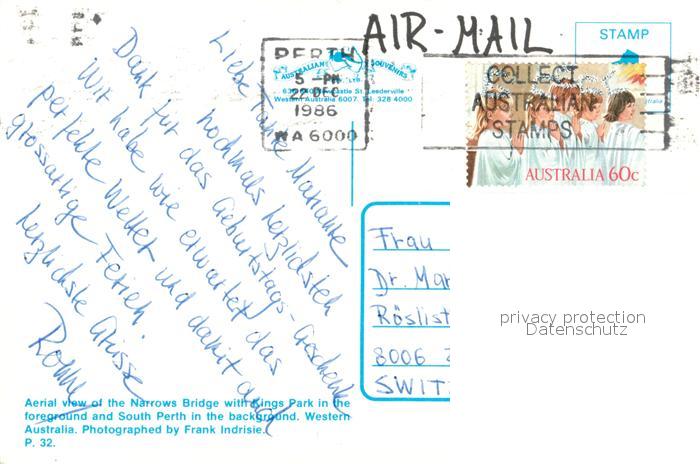 AIR-MAIL
STAMP
PERTH
5 - PM
22 DEC
1986
WA 6000
COLLECT
AUSTRALIAN
STAMPS
AUSTRALIA 60c
AUSTRALIAN SOUVENIRS
Leederville
Western Australia 6007. Tel: 328 4000
Liebe Tante Marianne
nochmals herzlichsten
Dank für das Geburtstags-Geschenk
Wir habe wie erwartet das
perfekte Wetter und damit auch
grossartige Ferien.
herzlichste Grüsse
Frau
Dr. Mar
Röslist
8006
SWIT
privacy protection
Datenschutz
Aerial view of the Narrows Bridge with Kings Park in the
foreground and South Perth in the background. Western
Australia. Photographed by Frank Indrisie.
P. 32.